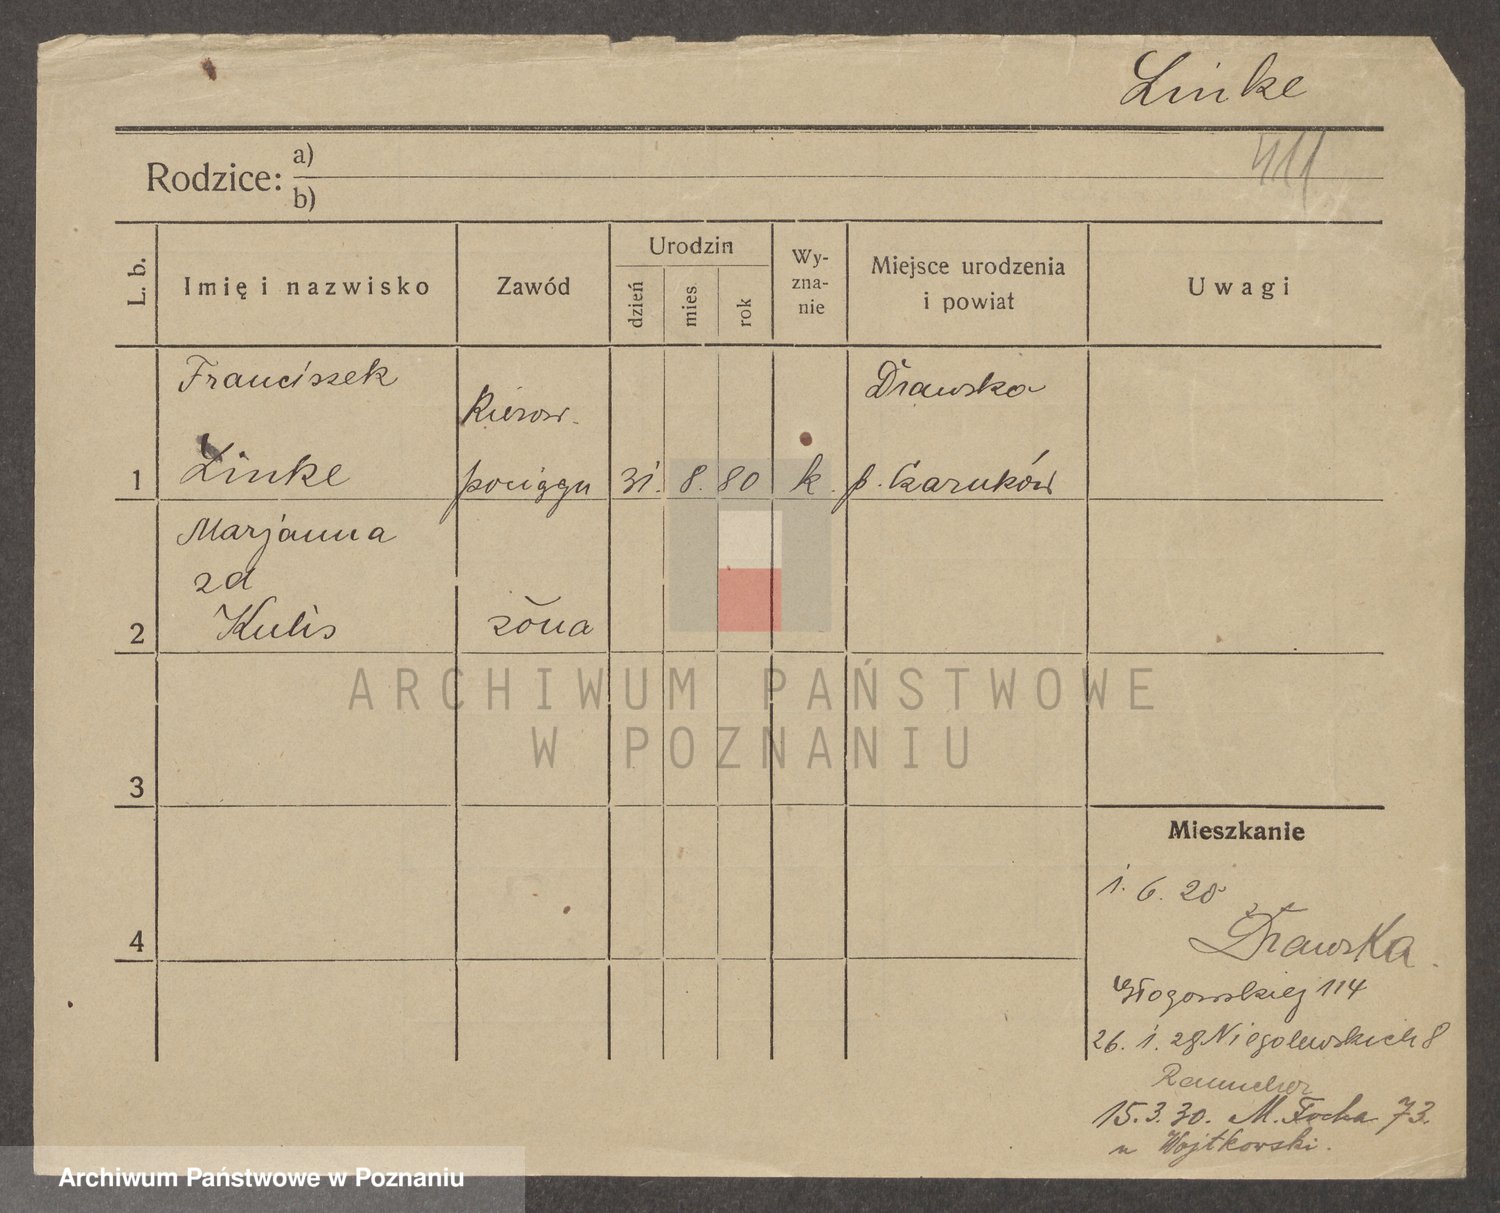 Linke
411
Rodzice: a)
b)
L. b.
Imię i nazwisko
Zawód
Urodzin
dzień
mies
rok
Wy-
zna-
nie
Miejsce urodzenia
i powiat
Uwagi
Franciszek
Kierow.
Drawsko
1
Linke
pociągu
31. 8. 80
k.
p. Czarnków
Marjanna
zd
2
Kulis
żona
3
4
Mieszkanie
1. 6. 28
z Drawska.
Głogowskiej 114
26. 1. 28 Niegolewskich 8
15.3.30. M. Focha 73.
u Wojtkowski.
ARCHIWUM PAŃSTWOWE
W POZNANIU
Archiwum Państwowe w Poznaniu